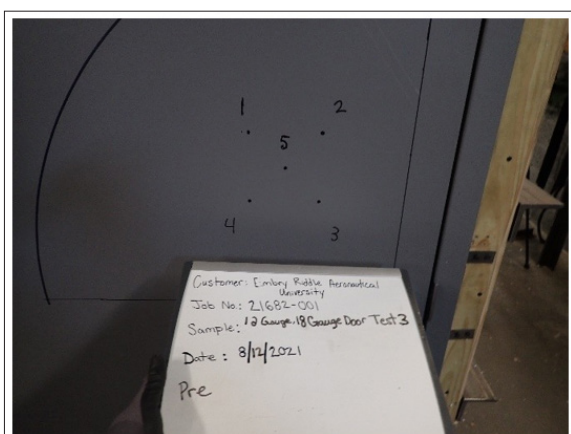 1
2
5
4
3
Customer: Embry Riddle Aeronautical
University
Job No.: 21682-001
Sample: 12 Gauge, 18 Gauge Door Test 3
Date: 8/12/2021
Pre